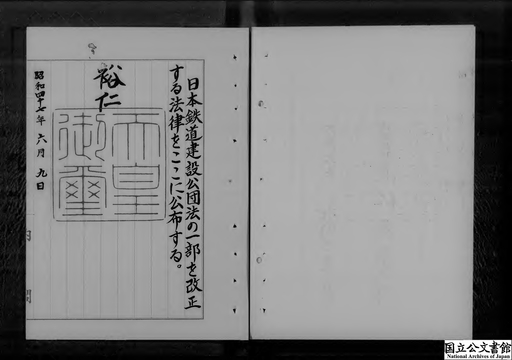 日本鉄道建設公団法の一部を改正
する法律をここに公布する。
裕仁
天皇
御璽
昭和四十七年 六月 九日
国立公文書館
National Archives of Japan